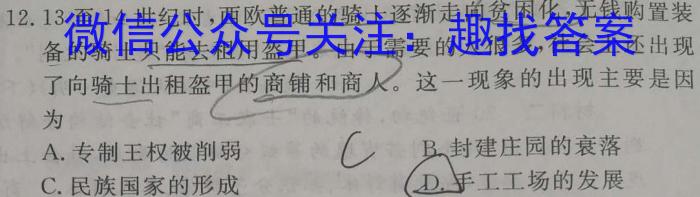 12.13至14世纪时,西欧普通的骑士逐渐走向贫困化,无钱购置装
微信公众号关注:趣找答案
备的骑士只能去租用盔甲。由于需要的人很多,社会上还出现
了向骑士出租盔甲的商铺和商人。这一现象的出现主要是因
为
A. 专制王权被削弱 C B. 封建庄园的衰落
C. 民族国家的形成 D. 手工工场的发展